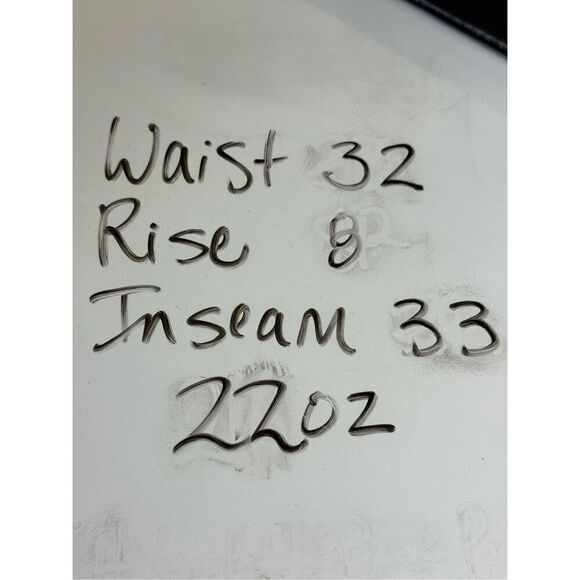 Waist 32
Rise 8
Inseam 33
22oz